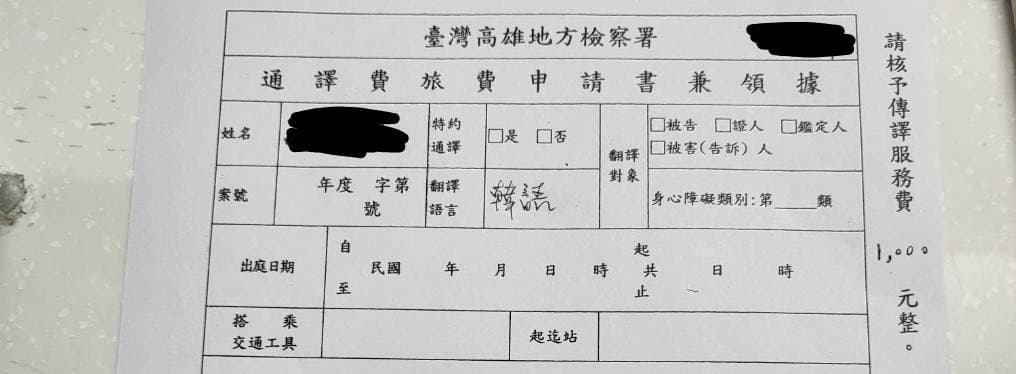 臺灣高雄地方檢察署
通譯費旅費申請書兼領據
姓名
特約通譯
□是 □否
翻譯對象
□被告 □證人 □鑑定人
□被害(告訴)人
案號
年度 字第
號
翻譯語言
韓語
身心障礙類別:第_____類
出庭日期
自
至
民國 年 月 日 時
起
共 日 時
止
搭乘
交通工具
起迄站
請核予傳譯服務費 1,000 元整。